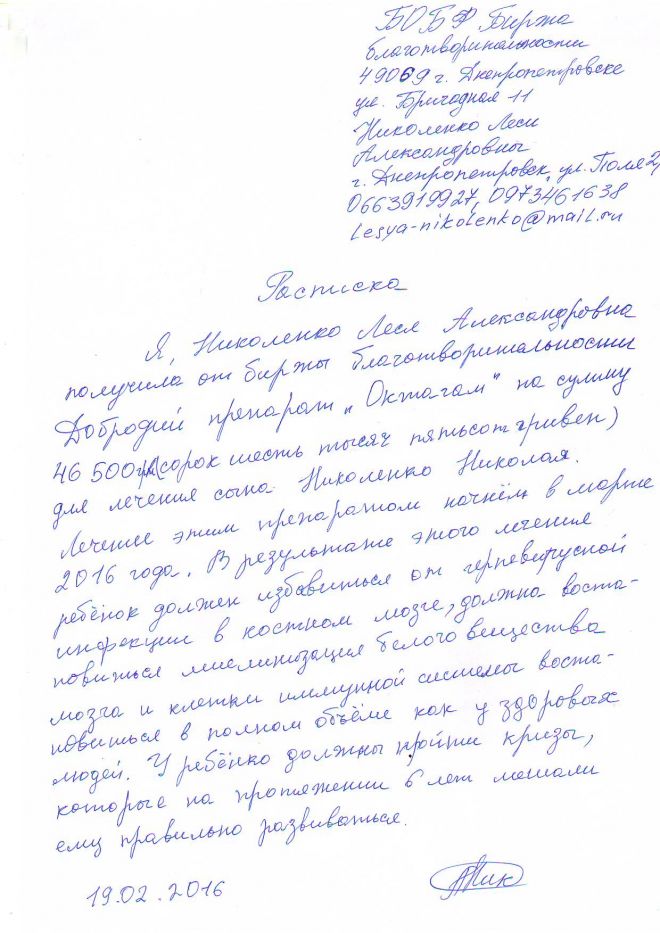 БОБФ Биржа
благотворительности
49069 г. Днепропетровск
ул. Бригадная 11
Николенко Леси
Александровны
г. Днепропетровск, ул. Поля 2,
0663919927, 0973461638
lesya-nikolenko@mail.ru
Расписка
Я, Николенко Леся Александровна
получила от биржы благотворительности
Добродий препарат „Октагам" на сумму
46 500грн(сорок шесть тысяч пятьсот гривен)
для лечения сына Николенко Николая.
Лечение этим препаратом начнём в марте
2016 года. В результате этого лечения
ребёнок должен избавиться от герпевирусной
инфекции в костном мозге, должна воста-
новиться миелинизация белого вещества
мозга и клетки иммунной системы воста-
новиться в полном объёме как у здоровых
людей. У ребёнка должны пройти кризы,
которые на протяжении 6 лет мешали
ему правильно развиваться.
19.02.2016